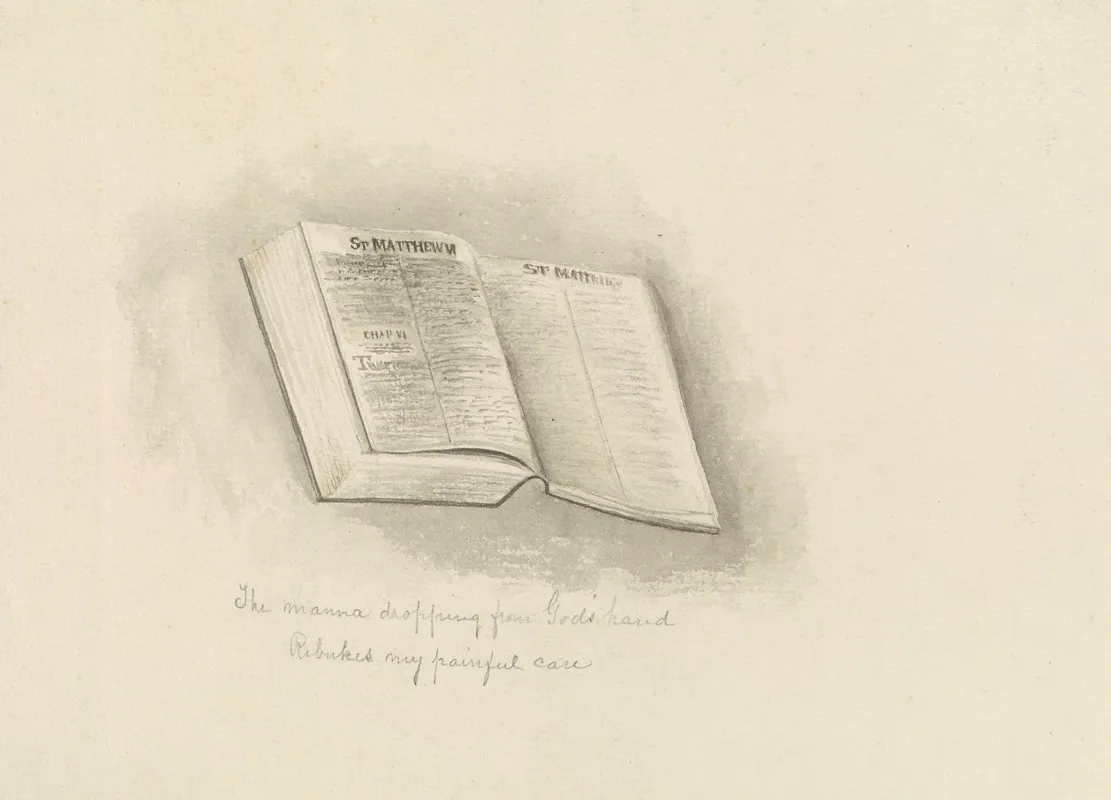 ST MATTHEW VI
ST MATTHEW
CHAP VI
The manna dropping from God's hand
Rebukes my painful care